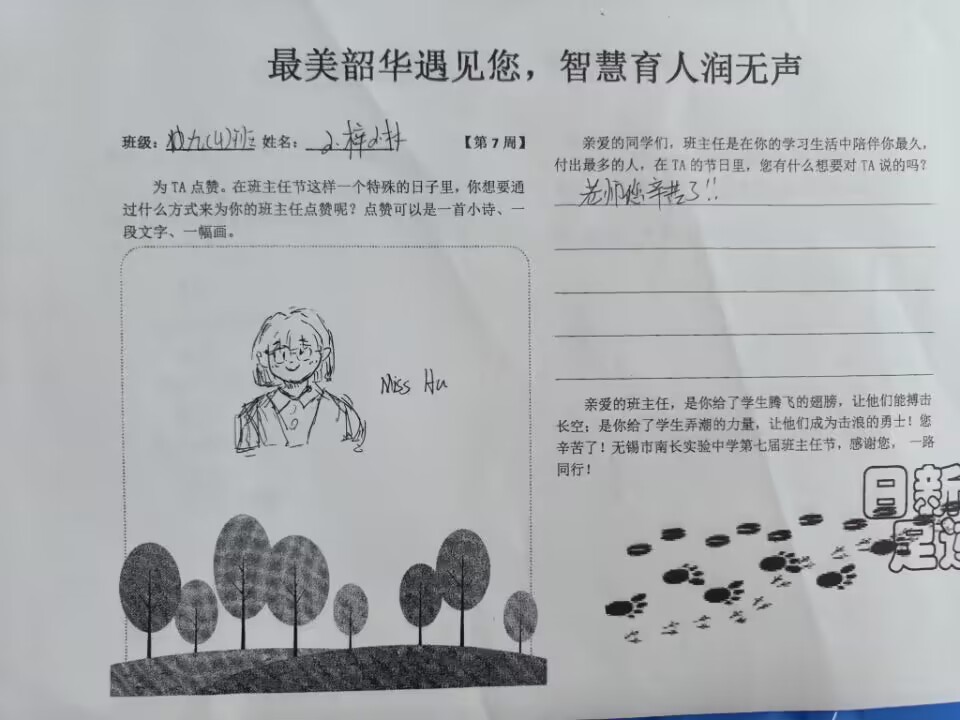 最美韶华遇见您，智慧育人润无声
班级：初九(4)班 姓名： 【第7周】
为TA点赞。在班主任节这样一个特殊的日子里，你想要通
过什么方式来为你的班主任点赞呢？点赞可以是一首小诗、一
段文字、一幅画。
Miss Hu
亲爱的同学们，班主任是在你的学习生活中陪伴你最久，
付出最多的人，在TA的节日里，您有什么想要对TA说的吗？
老师您辛苦了！！
亲爱的班主任，是你给了学生腾飞的翅膀，让他们能搏击
长空；是你给了学生弄潮的力量，让他们成为击浪的勇士！您
辛苦了！无锡市南长实验中学第七届班主任节，感谢您， 一路
同行！
日新
足迹